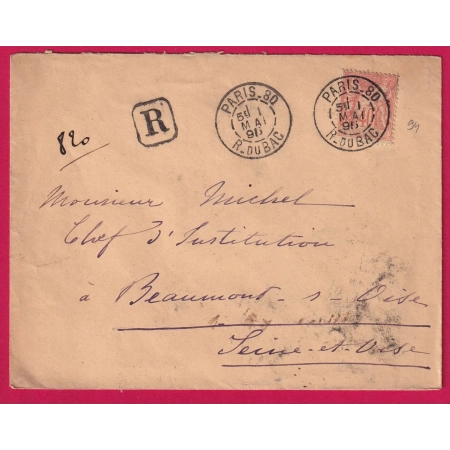 PARIS_80
5E 1
MAI
96
R. DU BAC
PARIS_80
5E 1
MAI
96
R. DU BAC
R
820
94
Monsieur Michel
Chef d'Institution
à Beaumont-s-Oise
Seine-et-Oise